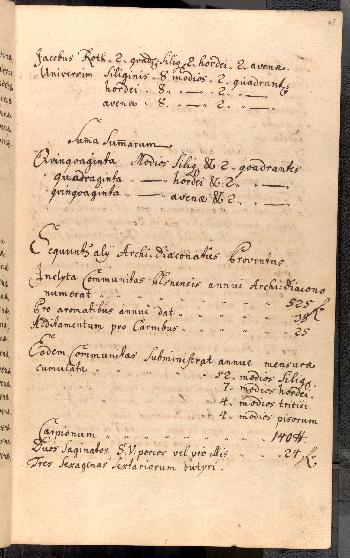 48
Jacobus Roth . 2. quadr: Silig. 2. hordei . 2. avenæ
Universim Siliginis . 8. modios . 2. quadrantes
hordei . 8. — . 2. —
avenæ . 8. — . 2. —
Suma Sumarum
Qvinqvaginta Modios Silig. & 2. qvadrantes
qvadraginta — hordei & 2. —
qvinqvaginta — avenæ & 2. —
Seqvuntur alij Archi-Diaconatus Proventus
Inclyta Communitas annui Archi-Diacono
numerat . . . . 525
Pro aromatibus annui dat . . . .
Additamentum pro Carnibus . . . . 25
Eadem Communitas Subministrat annue mensura
cumulata . . . 52. modios Silig.
7. modios hordei.
4. modios tritici
4. modios pisorum
. . . . 140 ℔.
Duos Saginatos S.V. porcos vel pro illis . . 24
Tres Sexaginas Sextariorum butyri .